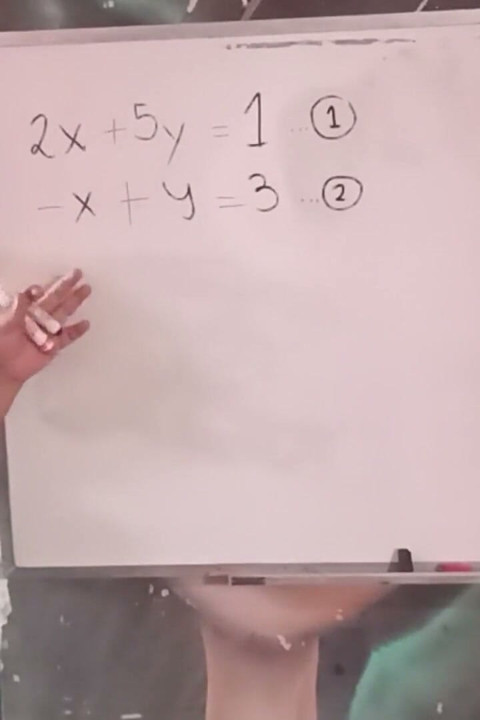 2x + 5y = 1 ... ①
-x + y = 3 ... ②